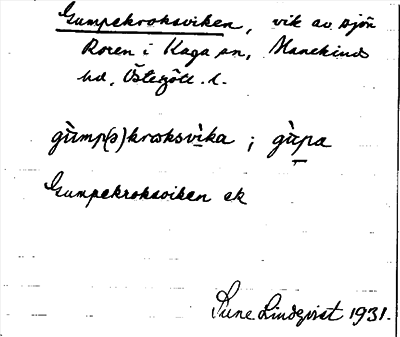 Gumpekroksviken, vik av sjön
Roxen i Kaga sn, Hanekinds
hd, Östergötl. l.
gùmp(ə)kroksvìka ; gùpa
Gumpekroksviken ek
Sune Lindqvist 1931.